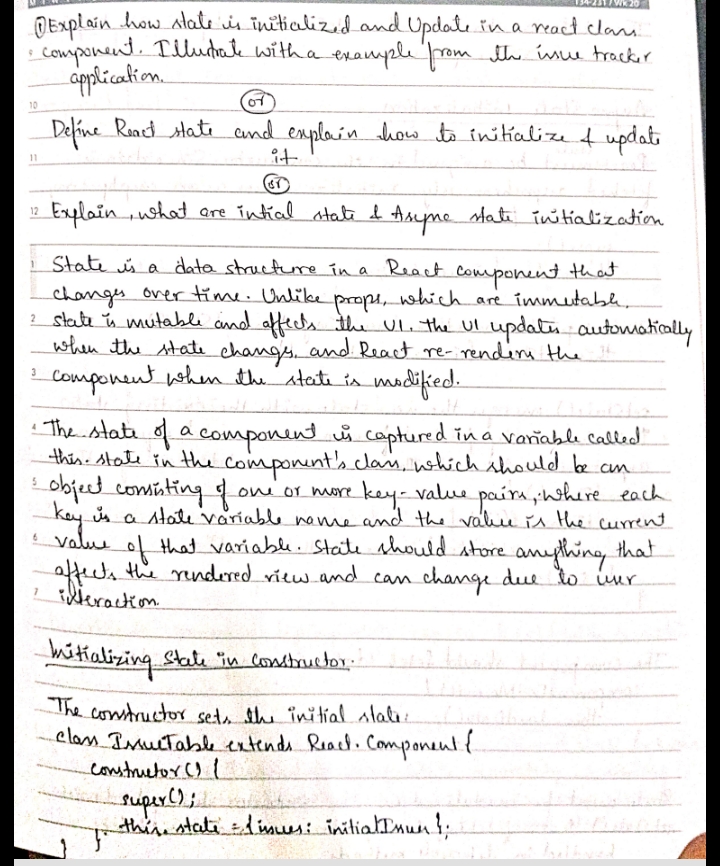 ① Explain how state is initialized and Update in a react class
component. Illustrate with a example from the issue tracker
application.
or
Define React state and explain how to initialize & update
it
or
Explain, what are intial state & Async state initialization
State is a data structure in a React component that
changes over time. Unlike props, which are immutable,
state is mutable and affects the UI. the UI updates automatically
when the state changes, and React re-renders the
component when the state is modified.
The state of a component is captured in a variable called
this.state in the component's class, which should be an
object consisting of one or more key-value pairs, where each
key is a state variable name and the value is the current
value of that variable. State should store anything that
affects the rendered view and can change due to user
interaction.
Initializing State in constructor.
The constructor sets the initial state:
class IssueTable extends React.Component {
constructor() {
super();
this.state = {issues: initialIssues};
} }